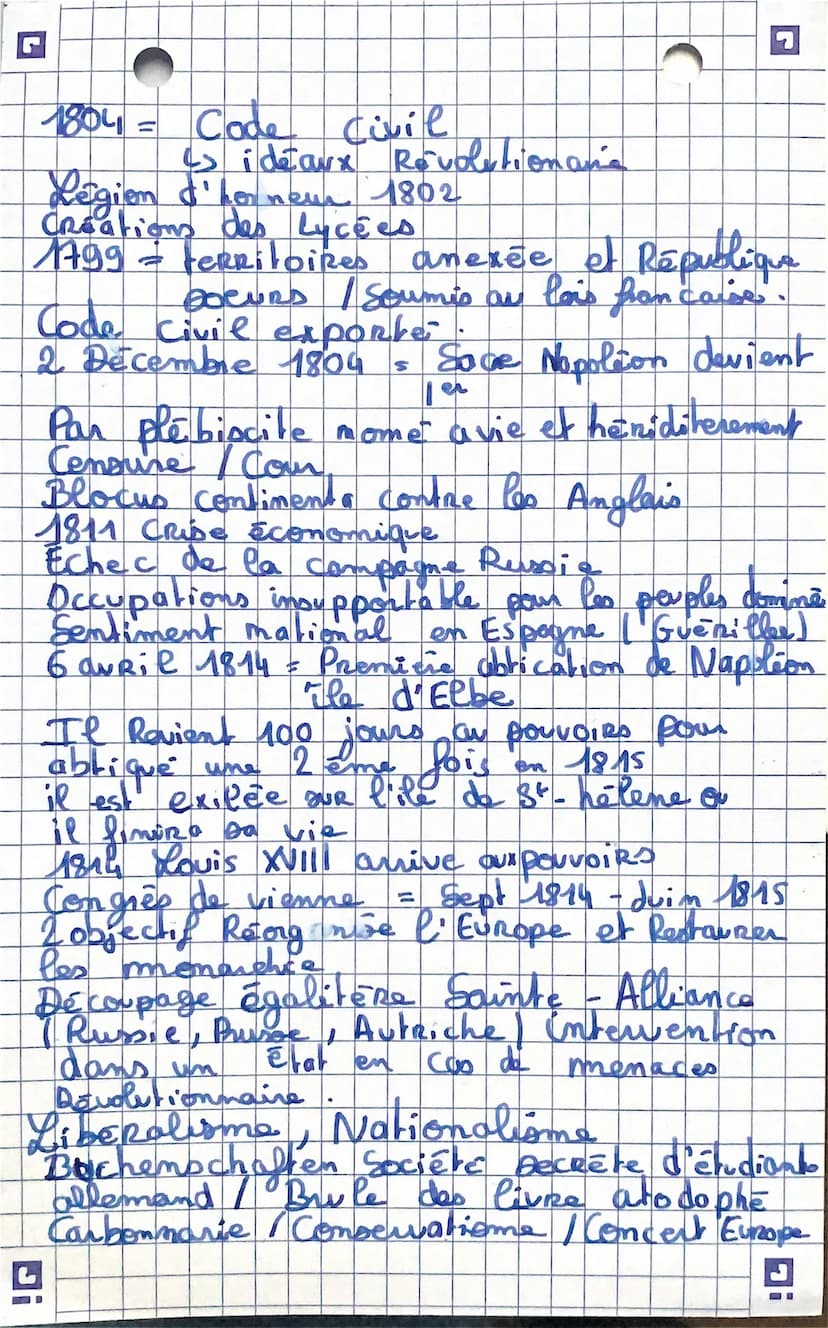 1804 = Code Civil
↳ idéaux Révolutionarie
Légion d'honneur 1802
Créations des Lycées
1799 = territoires anexée et République
soeurs / Soumis au lois francaise.
Code civil exporté.
2 Décembre 1804 = Sacre Napoléon devient
1er
Par plébiscite nomé a vie et hériditerement
Censure / Cour
Blocus continental contre les Anglais
1811 Crise économique
Échec de la campagne Russie
Occupations insupportable pour les peuples dominé
Sentiment national en Espagne (Guérillas)
6 avril 1814 = Premiere abtication de Napoléon
île d'Elbe
Il Revient 100 jours au pouvoirs pour
abtiqué une 2 ème fois en 1815
il est exilée sur l'île de St-hélene ou
il finira sa vie
1814 Louis XVIII arrive aux pouvoirs
Congrès de vienne = Sept 1814 - Juin 1815
2 objectif Réorganisée l'Europe et Restaurer
les monarchie
Découpage égalitère Sainte - Alliance
(Russie, Prusse, Autriche) intervention
dans un État en cas de menaces
Révolutionnaire.
Libéralisme, Nationalisme
Buchenschaften Société secrète d'étudiants
allemand / Brule des livre
Carbonnarie / Conservatisme / Concert Europe